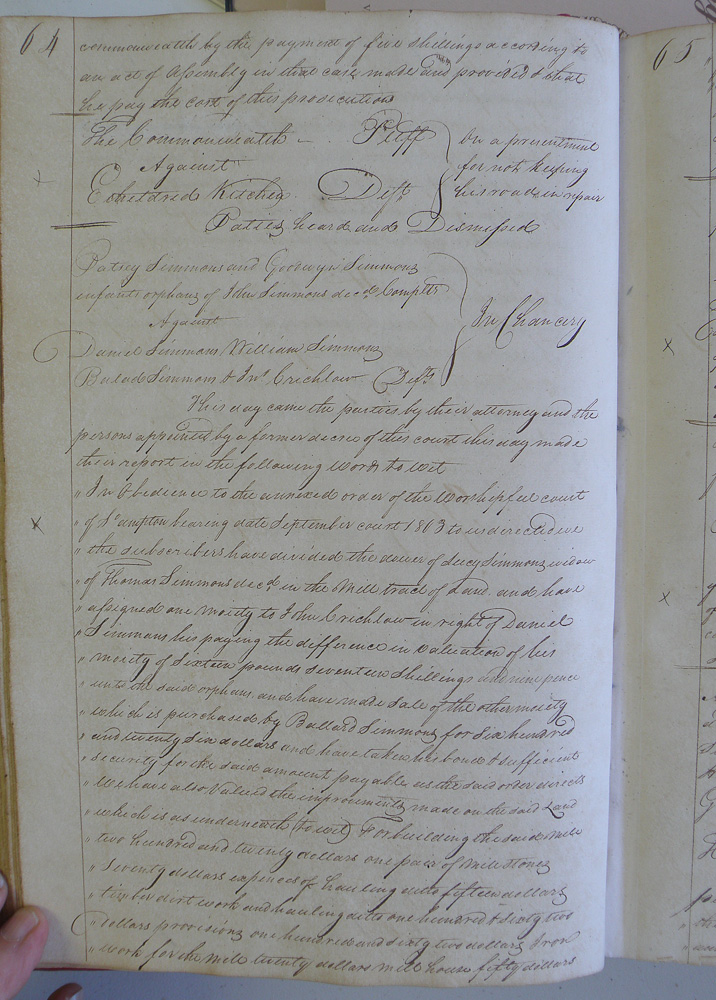 64
commonwealth by the payment of five shillings according to
an act of Assembly in that case made and provided & that
he pay the cost of this prosecution
The Commonwealth — Pltff
Against
Etheldred Kitchen Deft
On a presentment
for not keeping
his road in repair
Paties heard and Dismissed
Patsey Simmons and Goodwyn Simmons
infants orphans of John Simmons decd. Complts
Against
Daniel Simmons William Simmons
Balad Simmons & Jno. Crichlow Defts
In Chancery
This day came the parties by their attorney and the
persons appointed by a former decree of this court this day made
their report in the following words to wit
" In Obedience to the annexed order of the Worshipful court
" of So.ampton bearing date September court 1803 to us directed we
" the subscribers have divided the dower of Lucy Simmons widow
" of Thomas Simmons decd. in the Mill tract of Land and have
" assigned one moiety to John Crichlow in right of Daniel
" Simmons his paying the difference in valuation of his
" moiety of Sixteen pounds seventeen shillings and nine pence
" unto the said orphans and have made sale of the other moiety
" which is purchased by Ballard Simmons for Six hundred
" and twenty six dollars and have taken his bond & sufficient
" security for the said amount payable as the said order directs
" We have also Valued the improvments made on the said Land
" which is as underneath (to wit) For building the said Mill
" two hundred and twenty dollars one pair of Mill stones
" seventy dollars expences of hauling ditto fifteen dollars
" timber dirt work and hauling ditto one hundred & sixty two
" Dollars provisions one hundred and sixty two dollars Iron
" work for the mill twenty dollars mill house fifty dollars
65